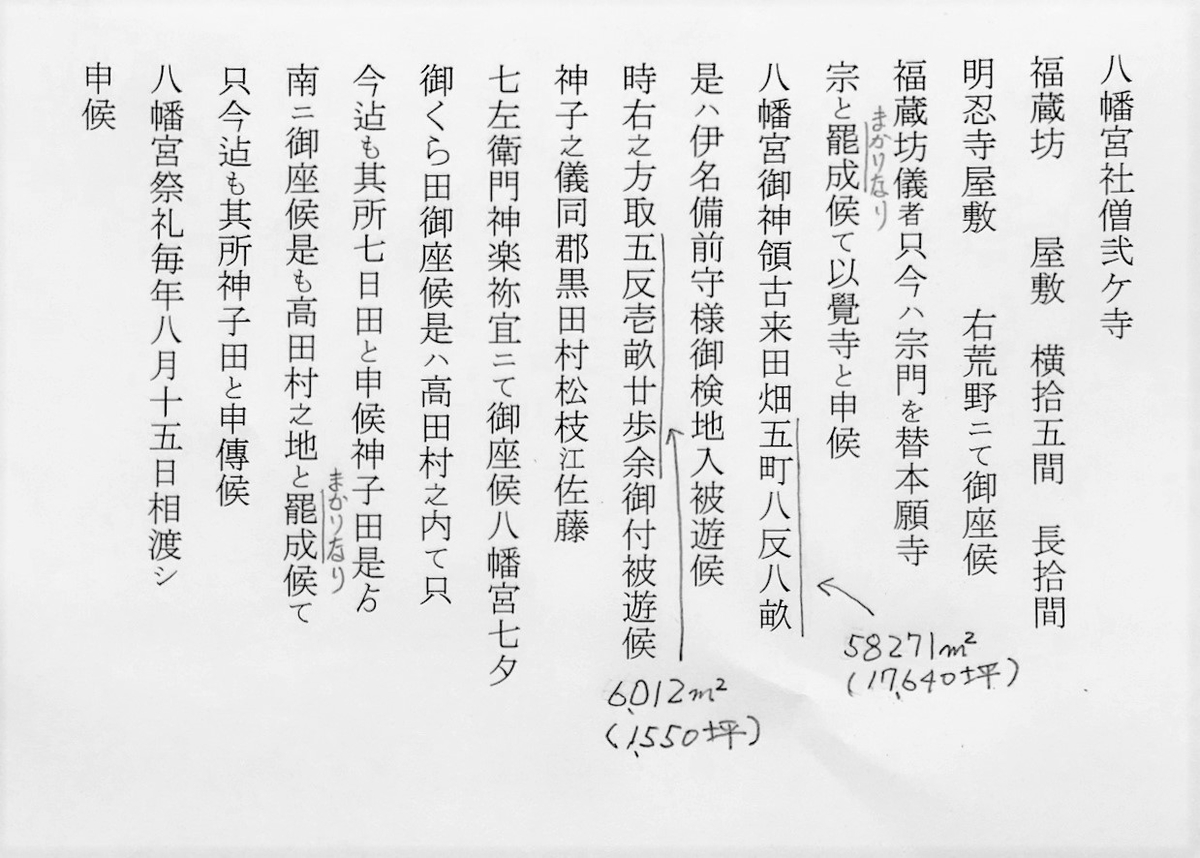 八幡宮社僧弐ケ寺
福蔵坊　屋敷　横拾五間　長拾間
明忍寺屋敷　右荒野ニて御座候
福蔵坊儀者只今ハ宗門を替本願寺
宗と罷成候て以覺寺と申候
まかりなり
八幡宮御神領古来田畑五町八反八畝
58271m²
(17,640坪)
是ハ伊名備前守様御検地入被遊候
時右之方取五反壱畝廿歩余御付被遊候
6,012m²
(1,550坪)
神子之儀同郡黒田村松枝江佐藤
七左衛門神楽祢宜ニて御座候八幡宮七夕
御くら田御座候是ハ高田村之内て只
今迠も其所七日田と申候神子田是ゟ
南ニ御座候是も高田村之地と罷成候て
まかりなり
只今迠も其所神子田と申傳候
八幡宮祭礼毎年八月十五日相渡シ
申候